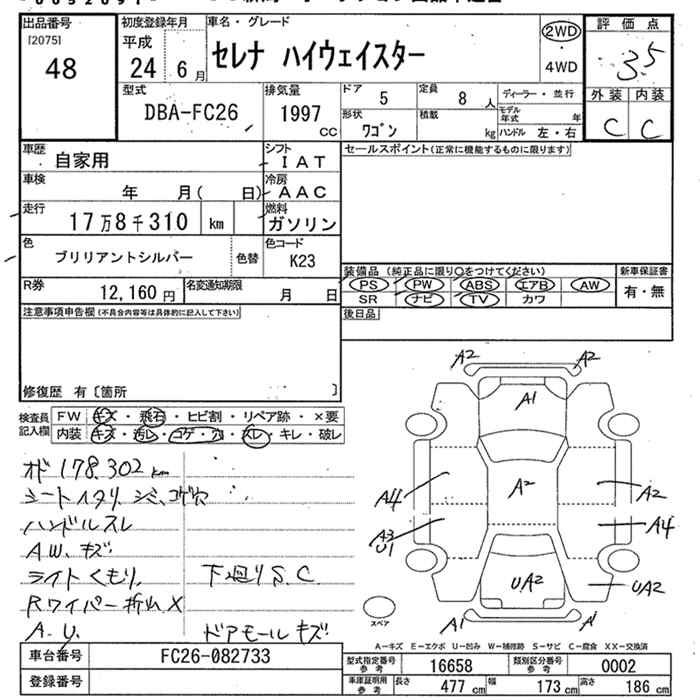 出品番号 初度登録年月 車名・グレード 評価点
[2075] 平成 セレナ ハイウェイスター 2WD 3.5
48 24 6月 4WD
型式 排気量 ドア 5 定員 8 人 ディーラー・並行 外装 内装
DBA-FC26 1997 CC 形状 ワゴン 積載 kg モデル年式 年 C C
ハンドル 左・右
車歴 自家用 シフト IAT セールスポイント(正常に機能するものに限ります)
車検 年 月( 日) 冷房 AAC
走行 17万8千310 km 燃料 ガソリン
色 ブリリアントシルバー 色替 色コード K23
装備品(純正品に限り○をつけてください) 新車保証書
R券 12,160円 名変通知期限 月 日 PS PW ABS エアB AW 有・無
SR ナビ TV カワ
注意事項申告欄(不具合内容等は具体的に記入して下さい) 後日品
修復歴 有〔箇所 〕
検査員記入欄 FW キズ・飛石・ヒビ割・リペア跡・×要
内装 キズ・汚レ・コゲ・穴・スレ・キレ・破レ
オド 178,302 km
シートヘタリ、シミ、コゲ穴
ハンドルスレ
AW、キズ
ライトくもり、 下廻りS、C
Rワイパー折レ X
A.U. ドアモールキズ
A2 A2
A1
A4 A2 A2
A3 U1 A4
UA2 UA2
A1 A1
スペア
A−キズ E−エクボ U−凹み W−補修跡 S−サビ C−腐食 XX−交換済
車台番号 FC26-082733 型式指定番号 参考 16658 類別区分番号 参考 0002
登録番号 車庫証明用 参考 長さ 477 cm 幅 173 cm 高さ 186 cm